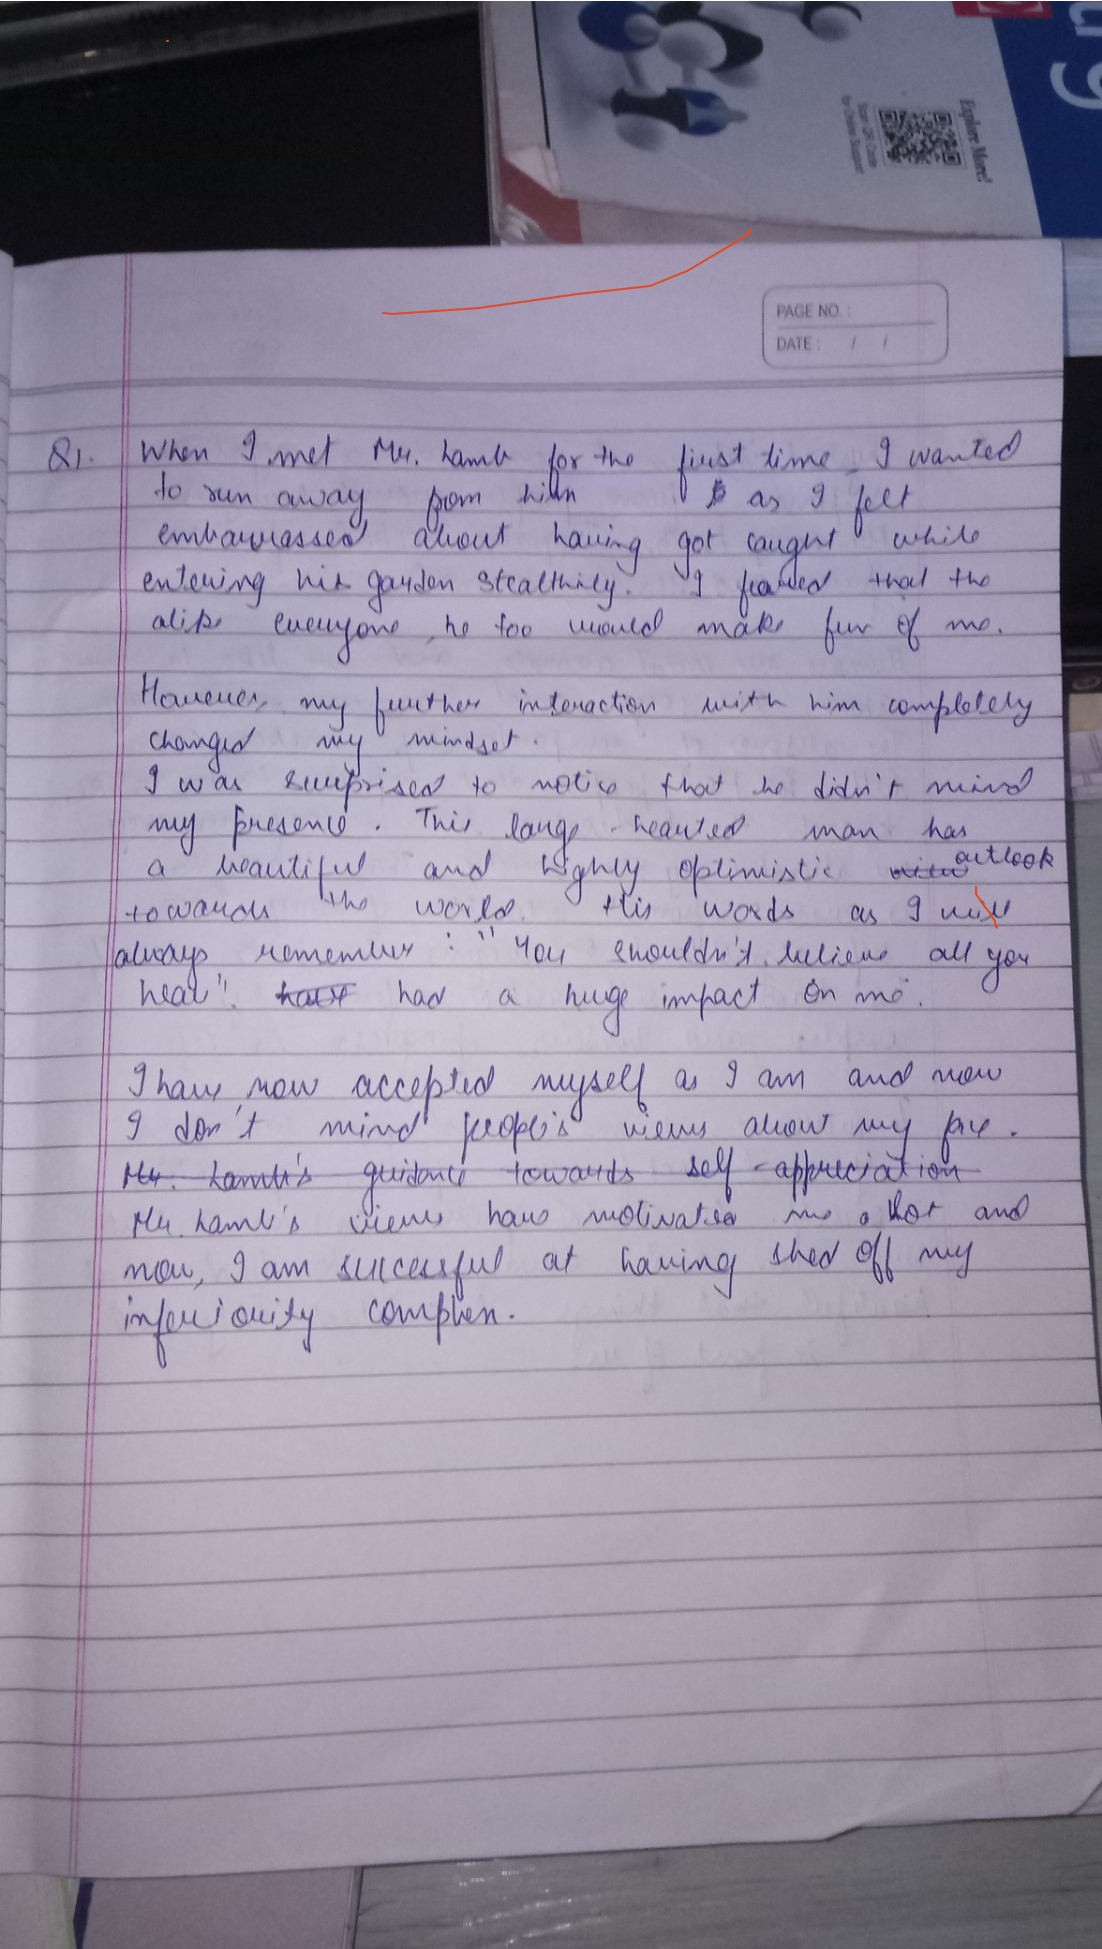 Explore More!
Scan QR Code
for Online Support
PAGE NO. :
DATE : / /
Q1. When I met Mr. Lamb for the first time I wanted
to run away from him as I felt
embarrassed about having got caught while
entering his garden stealthily. I feared that the
alike everyone, he too would make fun of me.
However, my further interaction with him completely
changed my mindset.
I was surprised to notice that he didn't mind
my presence. This large-hearted man has
a beautiful and highly optimistic outlook
towards the world. His words as I will
always remember : "You shouldn't believe all you
hear". had a huge impact on me.
I have now accepted myself as I am and now
I don't mind people's views about my face.
Mr. Lamb's guidance towards self-appreciation
Mr. Lamb's views have motivated me a lot and
now, I am successful at having shed off my
inferiority complex.